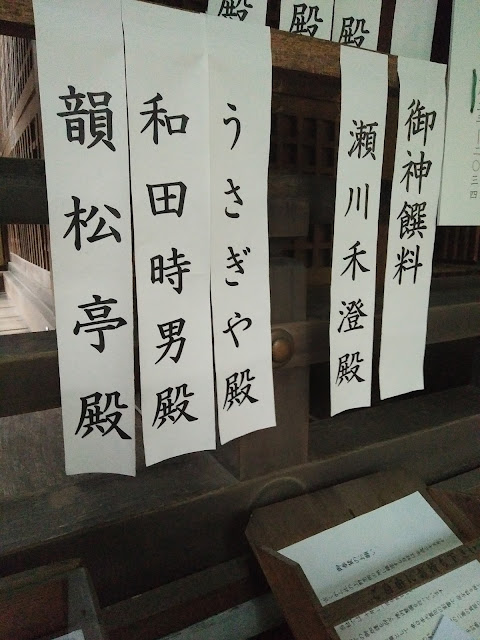 御神饌料
瀬川禾澄殿
うさぎや殿
和田時男殿
韻松亭殿
殿
殿
殿